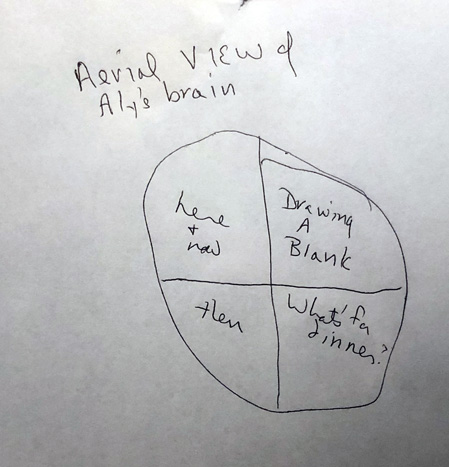 Aerial VIEW of
Aly's brain
here
+
now
Drawing
A
Blank
then
What's fa
dinner?